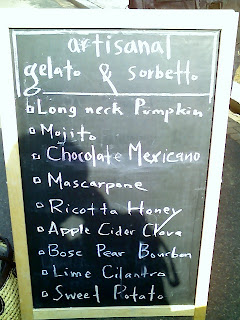 artisanal
gelato & sorbetto
Long neck Pumpkin
Mojito
Chocolate Mexicano
Mascarpone
Ricotta Honey
Apple Cider Clova
Bosc Pear Bourbon
Lime Cilantro
Sweet Potato